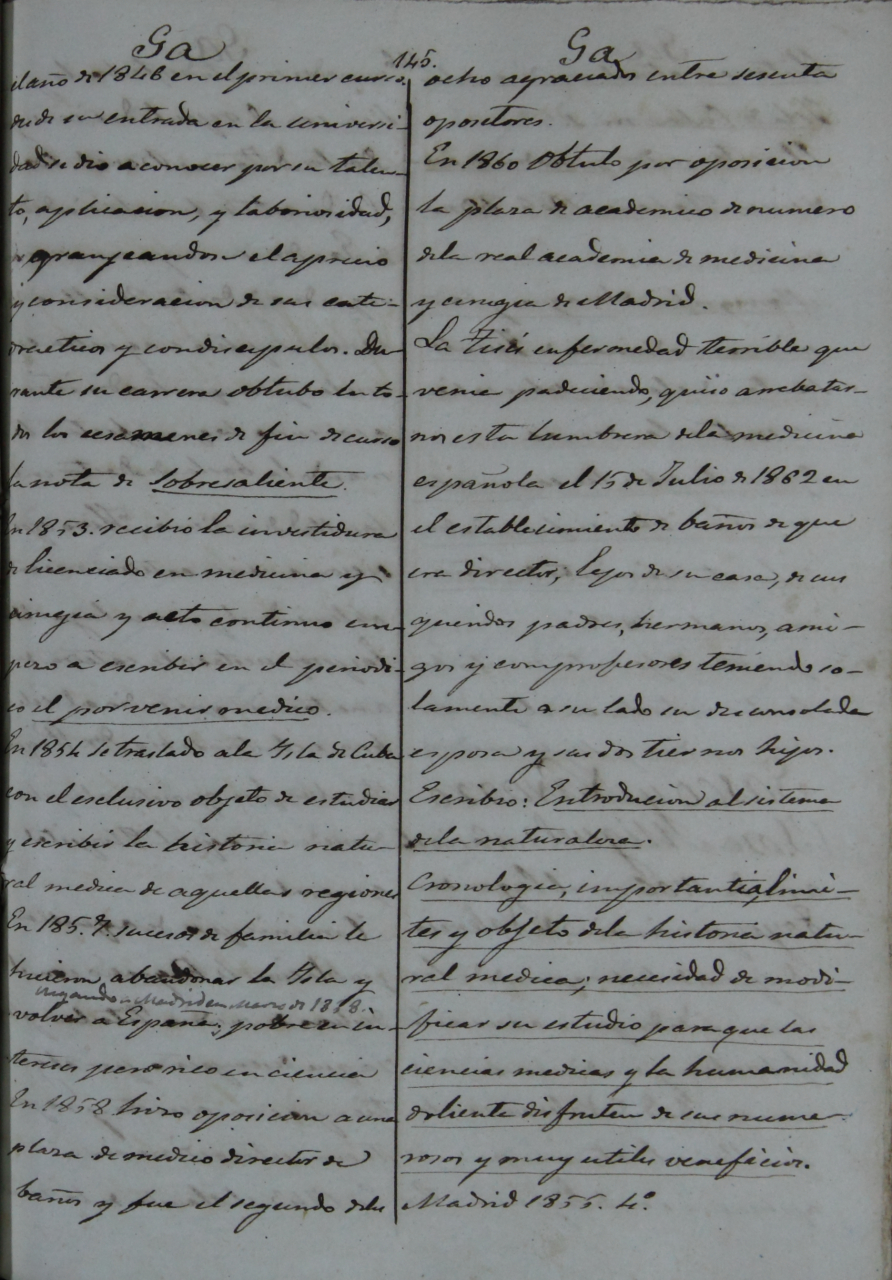 Ga
145.
Ga
el año de 1846 en el primer curso
de su entrada en la universi-
dad se dio a conocer por su talen-
to, aplicacion, y laboriosidad,
grangeandose el aprecio
y consideracion de sus cate-
draticos y condiscipulos. Du-
rante su carrera obtubo en to-
dos los ecsamenes de fin de curso
la nota de Sobresaliente.
En 1853. recibio la investidura
de licenciado en medicina y
cirugia y acto continuo em-
pezo a escribir en el periodi-
co el porvenir medico.
En 1854 se traslado a la Ysla de Cuba
con el esclusivo objeto de estudiar
y escribir la historia natu-
ral medica de aquellas regiones
En 1857. sucesos de familia le
hicieron abandonar la Ysla y
llegando a Madrid en Marzo de 1858.
volver a España; pobre en in-
tereses pero rico en ciencia
En 1858 hizo oposicion a una
plaza de medico director de
baños y fue el segundo de los
ocho agraciados entre sesenta
opositores.
En 1860 Obtubo por oposicion
la plaza de academico de numero
de la real academia de medicina
y cirugia de Madrid.
La Tisis enfermedad terrible que
venia padeciendo, quiso arrebatar-
nos esta lumbrera de la medicina
española el 15 de Julio de 1862 en
el establecimiento de baños de que
era director; lejos de su casa, de sus
queridos padres, hermanos, ami-
gos y comprofesores teniendo so-
lamente a su lado su desconsolada
esposa y sus dos tiernos hijos.
Escribio: Entroducion al sistema
de la naturaleza.
Cronologia, importantia, limi-
tes y objeto de la historia natu-
ral medica; necesidad de modi-
ficar su estudio para que las
ciencias medicas y la humanidad
doliente disfruten de sus nume-
rosos y muy utiles veneficios.
Madrid 1855. 4.º